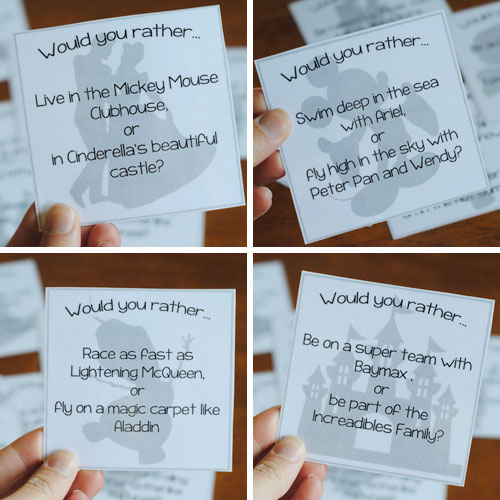 Would you rather...
Live in the Mickey Mouse
Clubhouse,
or
in Cinderella's beautiful
castle?
Would you rather...
Swim deep in the sea
with Ariel,
or
fly high in the sky with
Peter Pan and Wendy?
Would you rather...
Race as fast as
Lightening McQueen,
or
fly on a magic carpet like
Aladdin
Would you rather...
Be on a super team with
Baymax ,
or
be part of the
Increadibles Family?